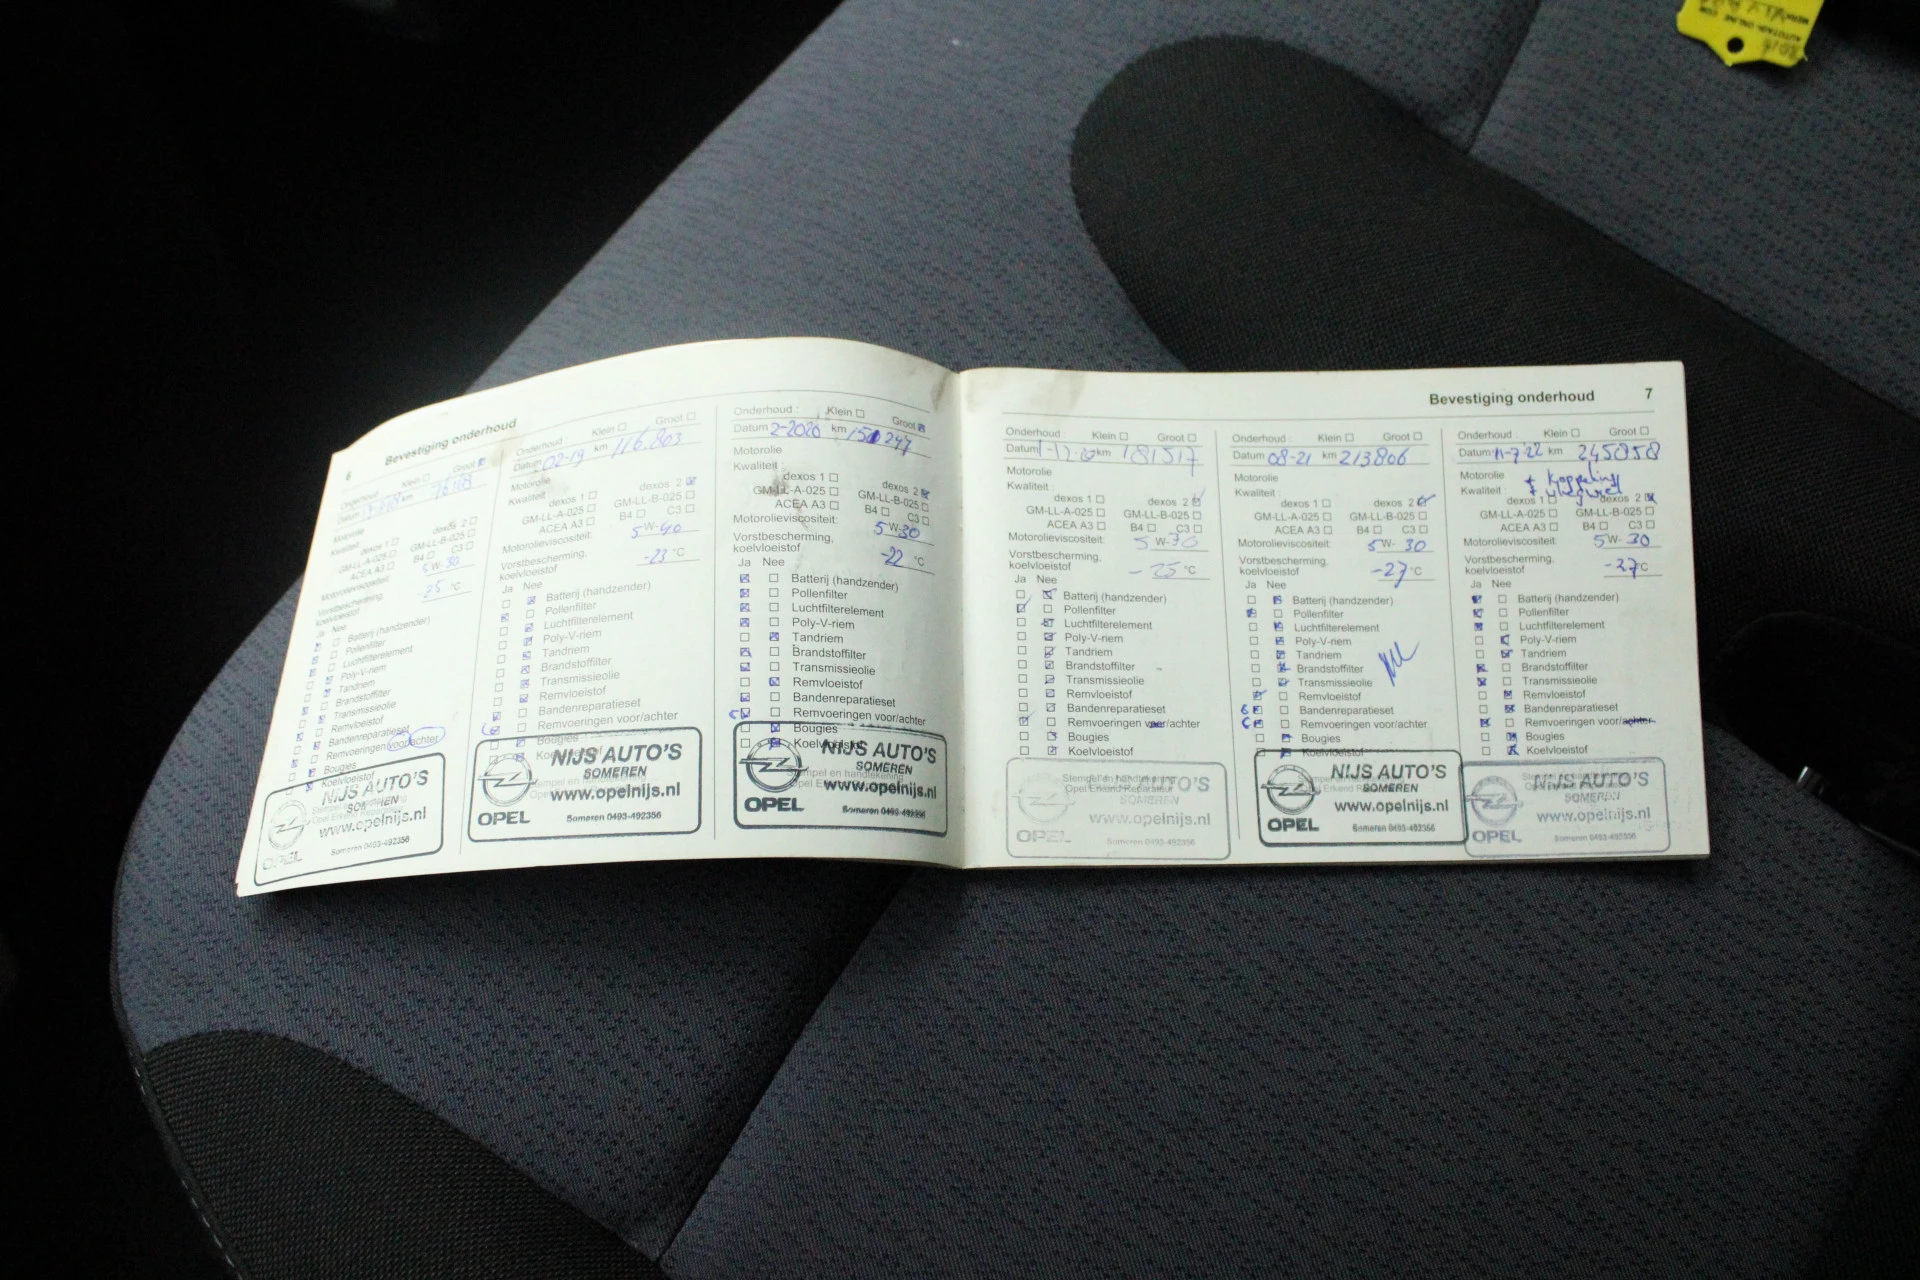 6 Bevestiging onderhoud
Onderhoud : Klein ☐ Groot ☒
Datum km
Motorolie
Kwaliteit : dexos 1 ☐ dexos 2 ☐
GM-LL-A-025 ☐ GM-LL-B-025 ☐
ACEA A3 ☐ B4 ☐ C3 ☐
Motorolieviscositeit: 5 W- 30
Vorstbescherming,
koelvloeistof °C
Ja Nee
Batterij (handzender)
Pollenfilter
Luchtfilterelement
Poly-V-riem
Tandriem
Brandstoffilter
Transmissieolie
Remvloeistof
Bandenreparatieset
Remvoeringen voor/achter
Bougies
Koelvloeistof
NIJS AUTO'S
SOMEREN
www.opelnijs.nl
OPEL Someren 0493-492356
Onderhoud : Klein ☐ Groot ☐
Datum 02-19 km 116.803
Motorolie
Kwaliteit : dexos 1 ☐ dexos 2 ☒
GM-LL-A-025 ☐ GM-LL-B-025 ☐
ACEA A3 ☐ B4 ☐ C3 ☐
Motorolieviscositeit: 5 W- 40
Vorstbescherming,
koelvloeistof -23 °C
Ja Nee
Batterij (handzender)
Pollenfilter
Luchtfilterelement
Poly-V-riem
Tandriem
Brandstoffilter
Transmissieolie
Remvloeistof
Bandenreparatieset
Remvoeringen voor/achter
Bougies
NIJS AUTO'S
SOMEREN
www.opelnijs.nl
OPEL Someren 0493-492356
Onderhoud : Klein ☐ Groot ☒
Datum 2-2020 km 150247
Motorolie
Kwaliteit : dexos 1 ☐ dexos 2 ☒
GM-LL-A-025 ☐ GM-LL-B-025 ☐
ACEA A3 ☐ B4 ☐ C3 ☐
Motorolieviscositeit: 5 W- 30
Vorstbescherming,
koelvloeistof -22 °C
Ja Nee
Batterij (handzender)
Pollenfilter
Luchtfilterelement
Poly-V-riem
Tandriem
Brandstoffilter
Transmissieolie
Remvloeistof
Bandenreparatieset
Remvoeringen voor/achter
Bougies
Koelvloeistof
NIJS AUTO'S
SOMEREN
www.opelnijs.nl
OPEL Someren 0493-492356
Bevestiging onderhoud 7
Onderhoud : Klein ☐ Groot ☐
Datum km 181517
Motorolie
Kwaliteit :
dexos 1 ☐ dexos 2 ☑
GM-LL-A-025 ☐ GM-LL-B-025 ☐
ACEA A3 ☐ B4 ☐ C3 ☐
Motorolieviscositeit: 5 W- 30
Vorstbescherming,
koelvloeistof -25 °C
Ja Nee
Batterij (handzender)
Pollenfilter
Luchtfilterelement
Poly-V-riem
Tandriem
Brandstoffilter
Transmissieolie
Remvloeistof
Bandenreparatieset
Remvoeringen voor/achter
Bougies
Koelvloeistof
Stempel en handtekening
Opel Erkend Reparateur
NIJS AUTO'S
SOMEREN
www.opelnijs.nl
OPEL Someren 0493-492356
Onderhoud : Klein ☐ Groot ☐
Datum 08-21 km 213806
Motorolie
Kwaliteit :
dexos 1 ☐ dexos 2 ☑
GM-LL-A-025 ☐ GM-LL-B-025 ☐
ACEA A3 ☐ B4 ☐ C3 ☐
Motorolieviscositeit: 5 W- 30
Vorstbescherming,
koelvloeistof -27 °C
Ja Nee
Batterij (handzender)
Pollenfilter
Luchtfilterelement
Poly-V-riem
Tandriem
Brandstoffilter
Transmissieolie
Remvloeistof
Bandenreparatieset
Remvoeringen voor/achter
Bougies
Koelvloeistof
NIJS AUTO'S
SOMEREN
www.opelnijs.nl
OPEL Someren 0493-492356
Onderhoud : Klein ☐ Groot ☐
Datum 11-7-22 245858
Motorolie + koppeling
Kwaliteit : + vliegwiel
dexos 1 ☐ dexos 2 ☒
GM-LL-A-025 ☐ GM-LL-B-025 ☐
ACEA A3 ☐ B4 ☐ C3 ☐
Motorolieviscositeit: 5 W- 30
Vorstbescherming,
koelvloeistof -27 °C
Ja Nee
Batterij (handzender)
Pollenfilter
Luchtfilterelement
Poly-V-riem
Tandriem
Brandstoffilter
Transmissieolie
Remvloeistof
Bandenreparatieset
Remvoeringen voor/achter
Bougies
Koelvloeistof
NIJS AUTO'S
SOMEREN
www.opelnijs.nl
OPEL Someren 0493-492356